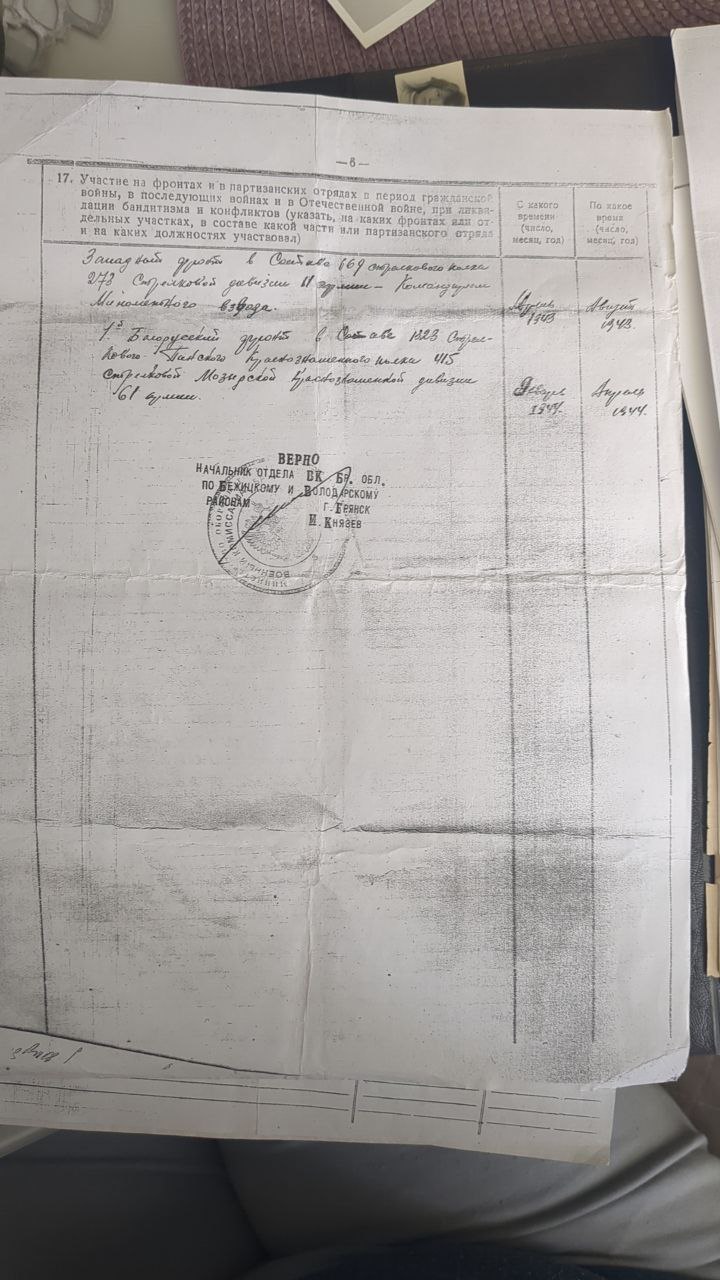 —6—
17. Участие на фронтах и в партизанских отрядах в период гражданской
войны, в последующих войнах и в Отечественной войне, при ликви-
дации бандитизма и конфликтов (указать, на каких фронтах или от-
дельных участках, в составе какой части или партизанского отряда
и на каких должностях участвовал)
С какого
времени
(число,
месяц, год)
По какое
время
(число,
месяц, год)
Западный фронт в Составе 669 стрелкового полка
273 Стрелковой дивизии 11 армии – Командиром
Минометного взвода.
1943
Август
1943.
1й Белорусский фронт в Составе 1323 Стрел-
кового Краснознаменного полка 415
стрелковой Мозырской Краснознаменной дивизии
61 армии.
1944.
Апрель
1944.
ВЕРНО
НАЧАЛЬНИК ОТДЕЛА ВК БР. ОБЛ.
ПО БЕЖИЦКОМУ И ВОЛОДАРСКОМУ
РАЙОНАМ
Г. БРЯНСК
И. КНЯЗЕВ